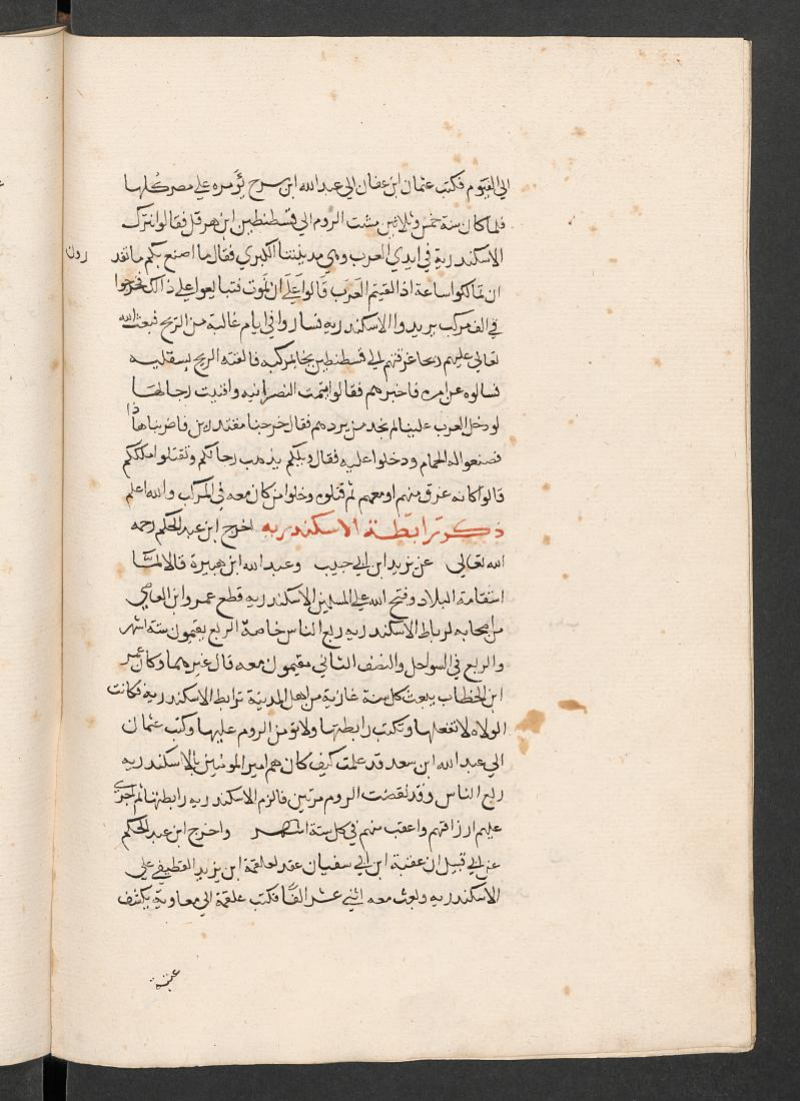 الي الفيوم فكتب عثمان ابن عفان الي عبد الله ابن سرح يؤمره علي مصر كلها
فلما كان سنة خمس وثلاثين مشت الروم الي قسطنطين ابن هرقل فقالوا نترك
الاسكندرية في ايدي العرب وهي مدينتنا الكبري فقال ما اصنع بكم ما تقد
رون
ان تمالكوا ساعة اذا لقيتم العرب قالوا علي ان نموت فتبايعوا علي ذالك فخرجوا
في الف مركب يريدوا الاسكندريه فساروا في ايام غالبة من الريح فبعث الله
تعالي عليهم ريحا غرقتهم الي قسطنطين نجا بمركبه فالقته الريح بسقليه
فسالوه عن امره فاخبرهم فقالوا شمت النصرانيه وافنيت رجالها
لو دخل العرب علينا لم نجد من يردهم فقال خرجنا مقتدرين فاصابنا هاذا
فصنعوا له الحمام ودخلوا عليه فقال ويلكم يذهب رجالكم وتقتلوا ملككم
قالوا كانه غرق منهم او معهم ثم قتلوه وخلوا من كان معه في المركب والله اعلم
ذكر مرابطة الاسكندريه اخرج ابن عبد الحكم رحمه
الله تعالي عن يزيد ابن ابي حبيب وعبد الله ابن هبيرة قالا لما
استقامة البلاد وفتح الله علي المسلمين الاسكندريه قطع عمرو ابن العاصي
من اصحابه لرباط الاسكندريه ربع الناس خاصة الربع يقيمون ستة اشهر
والربع في السواحل والنصف الثاني مقيمون معه قال غيرهما وكان عمر
ابن الخطاب يبعث كل سنة غازية من اهل المدينة ترابط الاسكندريه فكانت
الولاه لا تغفلها وتكتب رابطتها ولا تؤمن الروم عليها وكتب عثمان
الي عبد الله ابن سعد قد علمت كيف كان هم امير المومنين بالاسكندريه
ربع الناس وقد نقضت الروم مرتين فالزم الاسكندريه رابطتها ثم اجري
عليهم ارزاقهم واعقب منهم في كل ستة اشهر واخرج ابن عبد الحكم
عن ابي قبيل ان عتبة ابن ابي سفيان عقد لعلقمة ابن يزيد الغطيفي علي
الاسكندريه وبعث معه اثني عشر الفا فكتب علقمة الي معاوية يكشف
عتبة